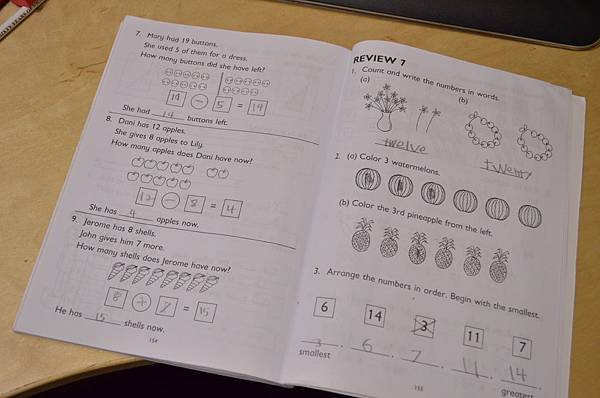 7. Mary had 19 buttons.
She used 5 of them for a dress.
How many buttons did she have left?
19 − 5 = 14
She had 14 buttons left.
8. Dani has 12 apples.
She gives 8 apples to Lily.
How many apples does Dani have now?
12 − 8 = 4
She has 4 apples now.
9. Jerome has 8 shells.
John gives him 7 more.
How many shells does Jerome have now?
8 + 7 = 15
He has 15 shells now.
154
REVIEW 7
1. Count and write the numbers in words.
(a) (b)
twelve twenty
2. (a) Color 3 watermelons.
(b) Color the 3rd pineapple from the left.
3. Arrange the numbers in order. Begin with the smallest.
6 14 3 11 7
3, 6, 7, 11, 14
smallest greatest
155